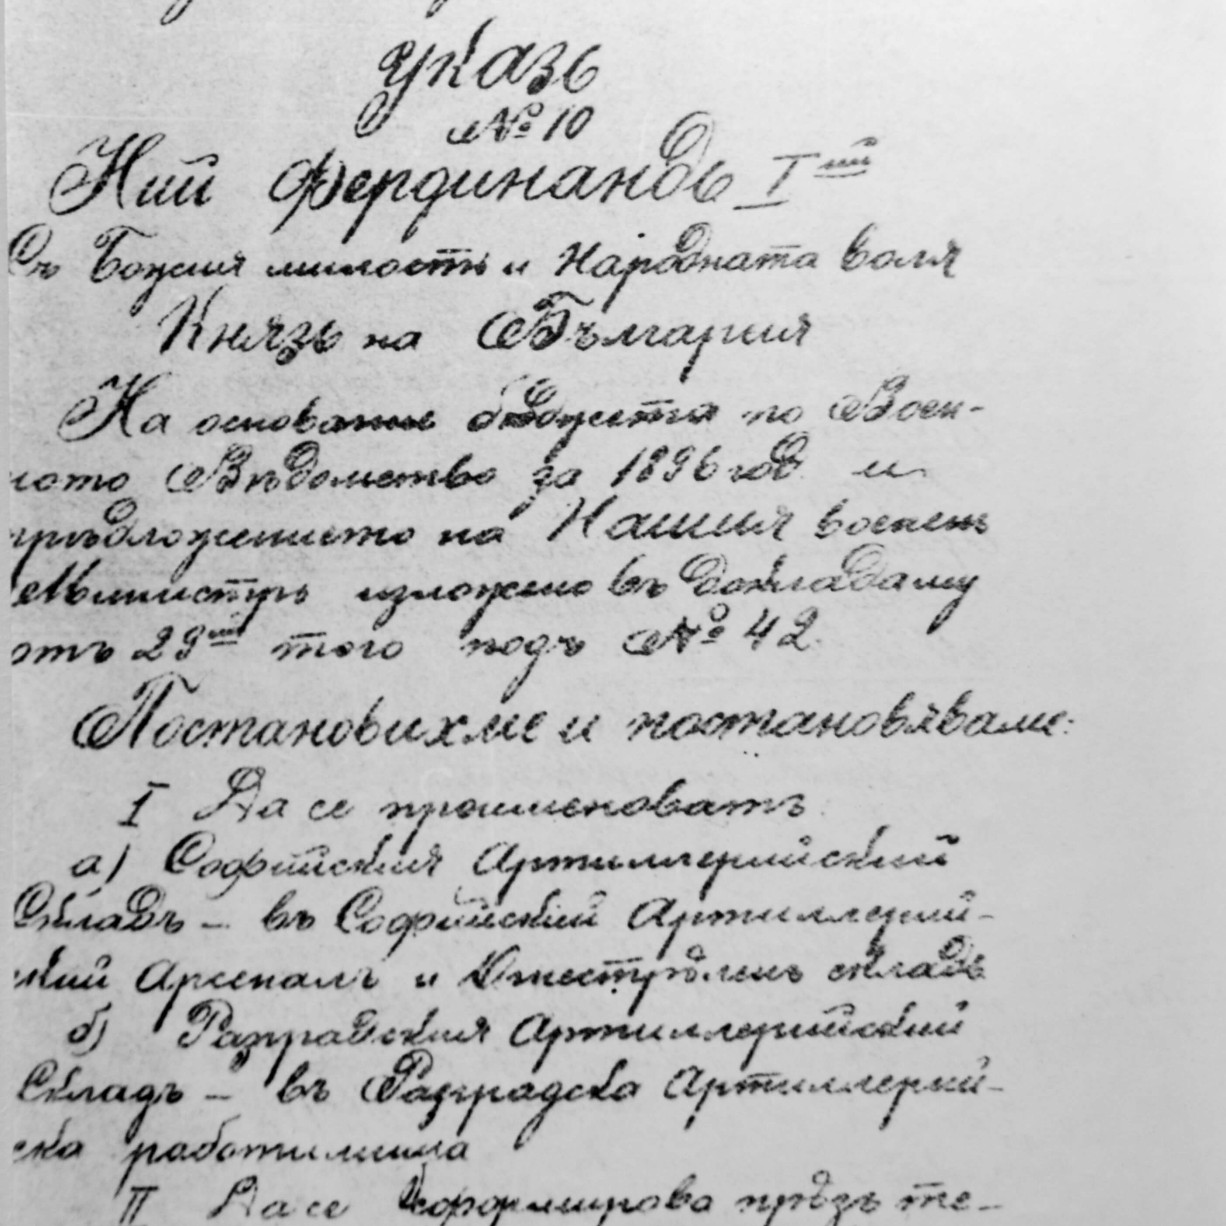 Указъ
№ 10
Ний Фердинандъ I ий
Съ Божия милость и Народната воля
Князъ на България
На основание бюджета по Воен-
ното Вѣдомство за 1896 год. и
прѣдложението на Нашия воененъ
Министръ изложено въ доклада му
отъ 29 ий того подъ № 42.
Постановихме и постановяваме:
I Да се проименоватъ
а) Софийския Артиллерийский
Складъ – въ Софийский Артиллерий-
ский Арсеналъ и складъ
б) Разградския Артиллерийский
Складъ – въ Разградска Артиллерий-
ска работилница
II Да се сформирова прѣзъ те-